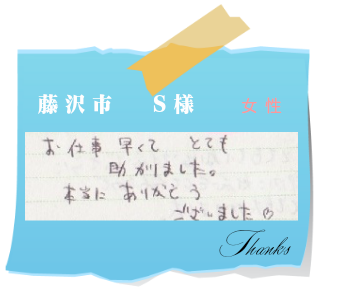 藤沢市 S様 女性
お仕事 早くて とても
助かりました。
本当に ありがとう
ございました♡
Thanks